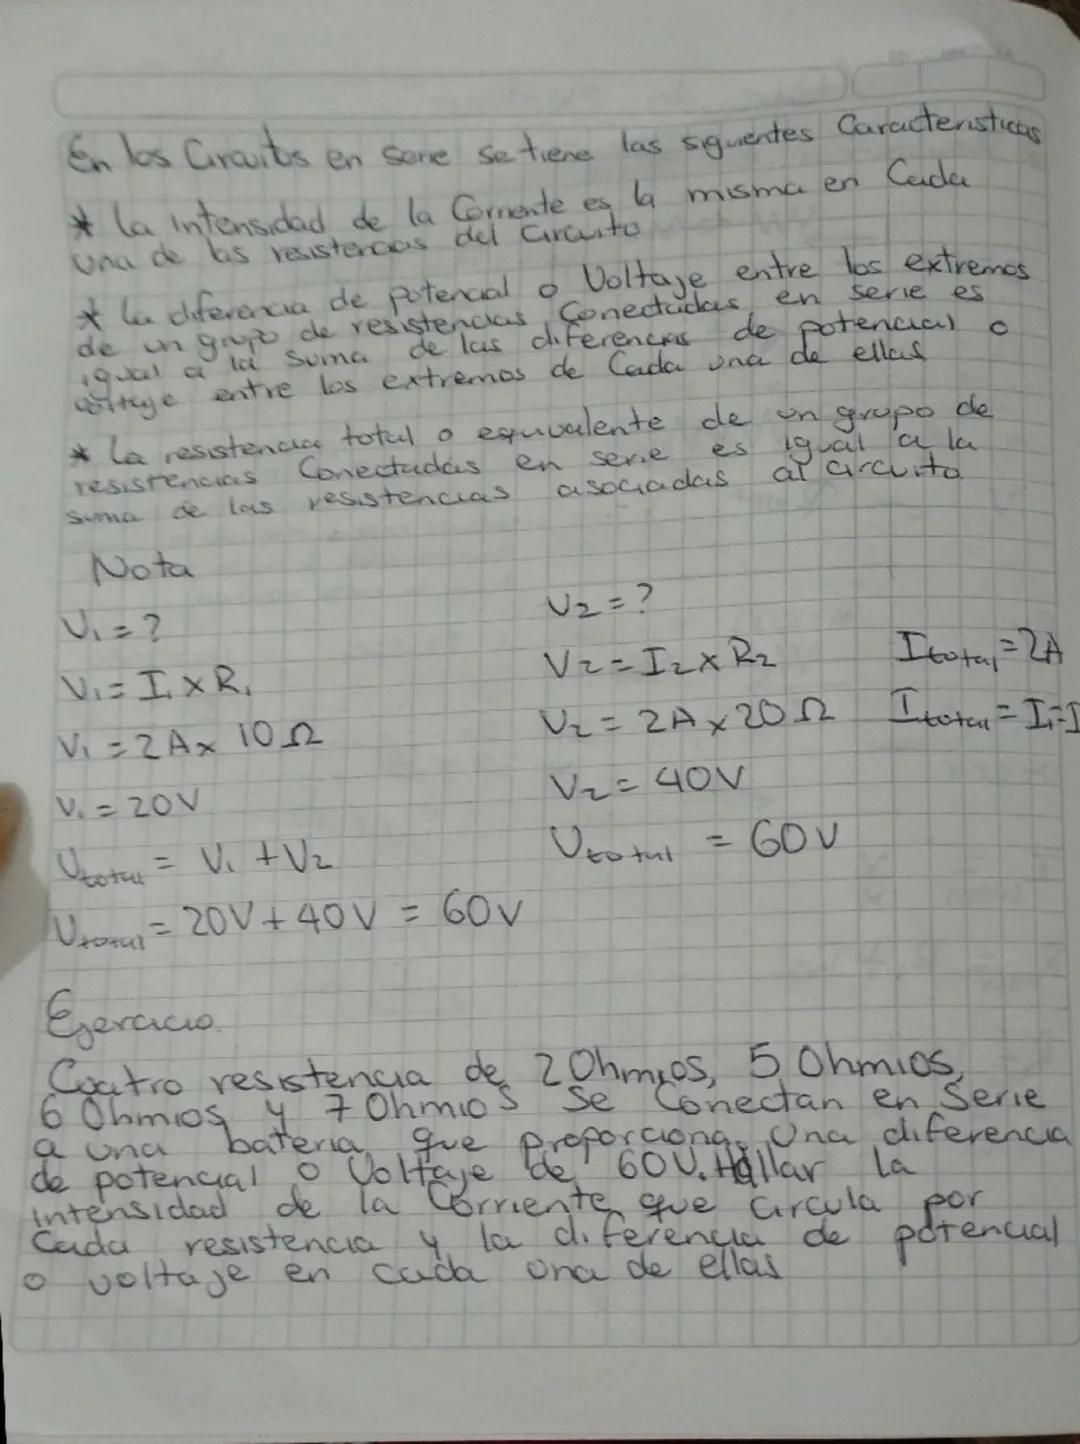 En los Circuitos en serie se tiene las siguientes Caracteristicas
* La intensidad de la Corriente es la misma en Cada
una de las resistencias del circuito
* La diferencia de potencial o Voltaje entre los extremos
de un grupo de resistencias Conectadas en serie es
igual a la suma de las diferencias de potencial o
voltaje entre los extremos de Cada una de ellas
* La resistencia total o equivalente de un grupo de
resistencias Conectadas en serie es igual a la
suma de las resistencias asociadas al circuito
Nota
V1 = ?
V2 = ?
V1 = I1 x R1
V2 = I2 x R2
Itotal = 2A
V1 = 2A x 10Ω
V2 = 2A x 20Ω
Itotal = I1=I
V1 = 20V
V2 = 40V
Vtotal = V1 + V2
Vtotal = 60V
Vtotal = 20V + 40V = 60V
Ejercicio.
Cuatro resistencia de 2 Ohmios, 5 Ohmios,
6 Ohmios y 7 Ohmios Se Conectan en Serie
a una bateria que proporciona Una diferencia
de potencial o Voltaje de 60V. Hallar la
intensidad de la Corriente que circula por
Cada resistencia y la diferencia de potencial
o voltaje en cada una de ellas